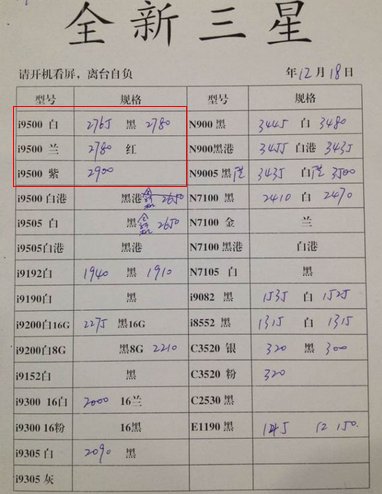 全新三星
请开机看屏，离台自负 年12月18日
型号 规格 型号 规格
i9500 白 2765 黑 2780 N900 黑 3445 白 3480
i9500 兰 2780 红 N900黑港 3455 白港 3435
i9500 紫 2900 N9005 黑 3435 白 3500
i9500 白港 黑港 2650 N7100 黑 2410 白 2470
i9505 白 黑 2650 N7100 金 兰
i9505白港 黑港 N7100 黑港 白港
i9192白 1940 黑 1910 N7105 白 黑
i9190白 黑 i9082 黑 1535 白 1525
i9200白16G 2275 黑16G i8552 黑 1315 白 1315
i9200白8G 黑8G 2210 C3520 银 320 黑 300
i9152白 黑 C3520 粉 320
i9300 16白 2000 16兰 C2530 黑
i9300 16粉 16黑 E1190 黑 145 150
i9305 白 2090 黑
i9305 灰